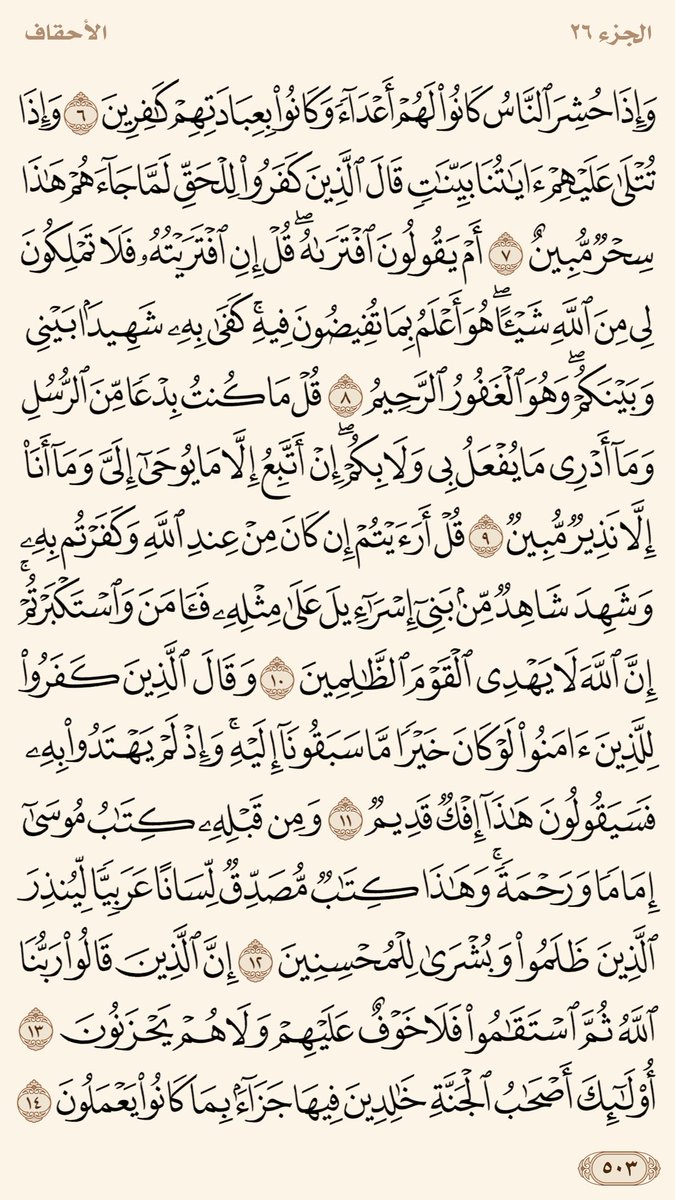 الجزء ٢٦
الأحقاف
وَإِذَا حُشِرَ ٱلنَّاسُ كَانُوا۟ لَهُمْ أَعْدَآءً وَكَانُوا۟ بِعِبَادَتِهِمْ كَـٰفِرِينَ ٦ وَإِذَا
تُتْلَىٰ عَلَيْهِمْ ءَايَـٰتُنَا بَيِّنَـٰتٍ قَالَ ٱلَّذِينَ كَفَرُوا۟ لِلْحَقِّ لَمَّا جَآءَهُمْ هَـٰذَا
سِحْرٌ مُّبِينٌ ٧ أَمْ يَقُولُونَ ٱفْتَرَىٰهُ ۖ قُلْ إِنِ ٱفْتَرَيْتُهُۥ فَلَا تَمْلِكُونَ
لِى مِنَ ٱللَّهِ شَيْـًٔا ۖ هُوَ أَعْلَمُ بِمَا تُفِيضُونَ فِيهِ ۖ كَفَىٰ بِهِۦ شَهِيدًۢا بَيْنِى
وَبَيْنَكُمْ ۖ وَهُوَ ٱلْغَفُورُ ٱلرَّحِيمُ ٨ قُلْ مَا كُنتُ بِدْعًا مِّنَ ٱلرُّسُلِ
وَمَآ أَدْرِى مَا يُفْعَلُ بِى وَلَا بِكُمْ ۖ إِنْ أَتَّبِعُ إِلَّا مَا يُوحَىٰٓ إِلَىَّ وَمَآ أَنَا۠
إِلَّا نَذِيرٌ مُّبِينٌ ٩ قُلْ أَرَءَيْتُمْ إِن كَانَ مِنْ عِندِ ٱللَّهِ وَكَفَرْتُم بِهِۦ
وَشَهِدَ شَاهِدٌ مِّنۢ بَنِىٓ إِسْرَٰٓءِيلَ عَلَىٰ مِثْلِهِۦ فَـَٔامَنَ وَٱسْتَكْبَرْتُمْ ۖ
إِنَّ ٱللَّهَ لَا يَهْدِى ٱلْقَوْمَ ٱلظَّـٰلِمِينَ ١٠ وَقَالَ ٱلَّذِينَ كَفَرُوا۟
لِلَّذِينَ ءَامَنُوا۟ لَوْ كَانَ خَيْرًا مَّا سَبَقُونَآ إِلَيْهِ ۚ وَإِذْ لَمْ يَهْتَدُوا۟ بِهِۦ
فَسَيَقُولُونَ هَـٰذَآ إِفْكٌ قَدِيمٌ ١١ وَمِن قَبْلِهِۦ كِتَـٰبُ مُوسَىٰٓ
إِمَامًا وَرَحْمَةً ۚ وَهَـٰذَا كِتَـٰبٌ مُّصَدِّقٌ لِّسَانًا عَرَبِيًّا لِّيُنذِرَ
ٱلَّذِينَ ظَلَمُوا۟ وَبُشْرَىٰ لِلْمُحْسِنِينَ ١٢ إِنَّ ٱلَّذِينَ قَالُوا۟ رَبُّنَا
ٱللَّهُ ثُمَّ ٱسْتَقَـٰمُوا۟ فَلَا خَوْفٌ عَلَيْهِمْ وَلَا هُمْ يَحْزَنُونَ ١٣
أُو۟لَـٰٓئِكَ أَصْحَـٰبُ ٱلْجَنَّةِ خَـٰلِدِينَ فِيهَا جَزَآءًۢ بِمَا كَانُوا۟ يَعْمَلُونَ ١٤
٥٠٣